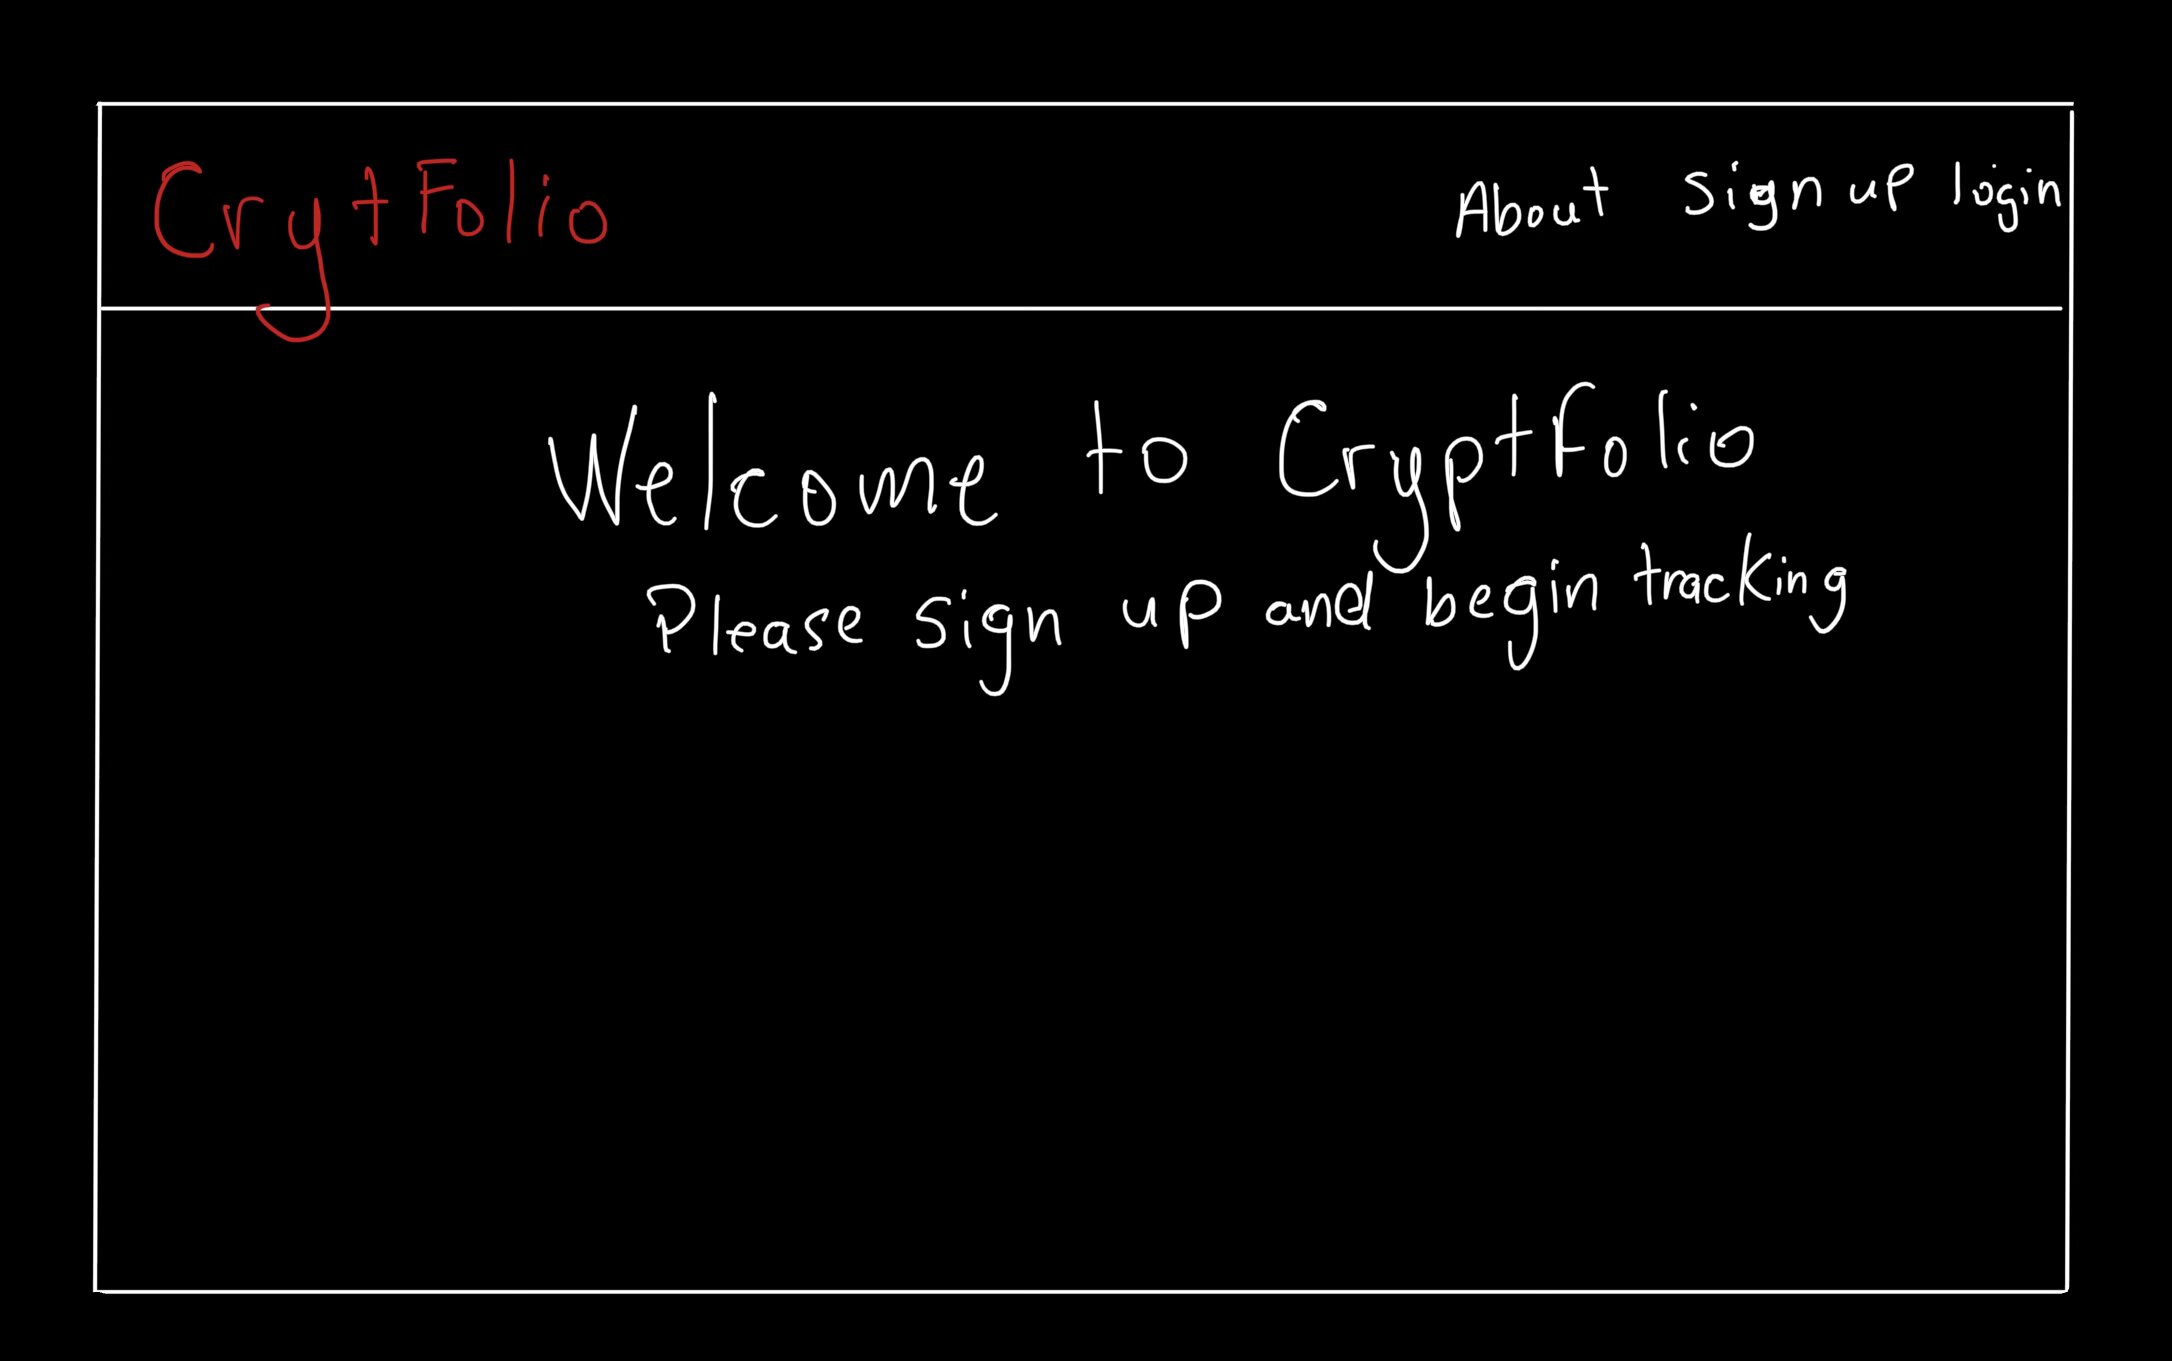 CrytFolio
About Sign up login
Welcome to Cryptfolio
Please sign up and begin tracking